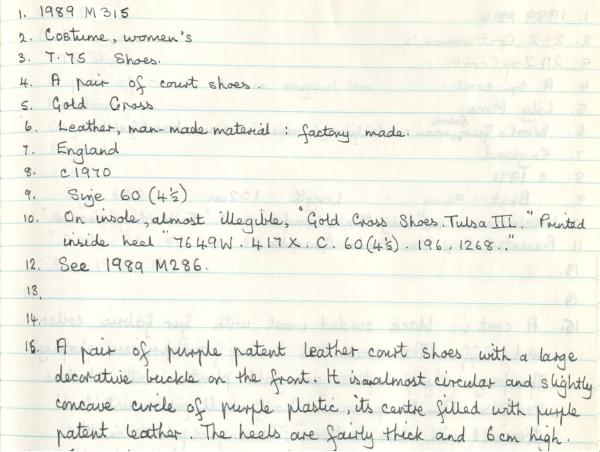 1. 1989 M315
2. Costume, women's
3. T.75 Shoes.
4. A pair of court shoes.
5. Gold Cross
6. Leather, man-made material : factory made.
7. England
8. c1970
9. Size 60 (4½)
10. On insole, almost illegible, "Gold Cross Shoes. Tulsa III." Printed
inside heel "7649W. 417X. C. 60(4½). 196. 1268.."
12. See 1989 M286.
13.
14.
15. A pair of purple patent leather court shoes with a large
decorative buckle on the front. It is almost circular and slightly
concave circle of purple plastic, its centre filled with purple
patent leather. The heels are fairly thick and 6cm high.